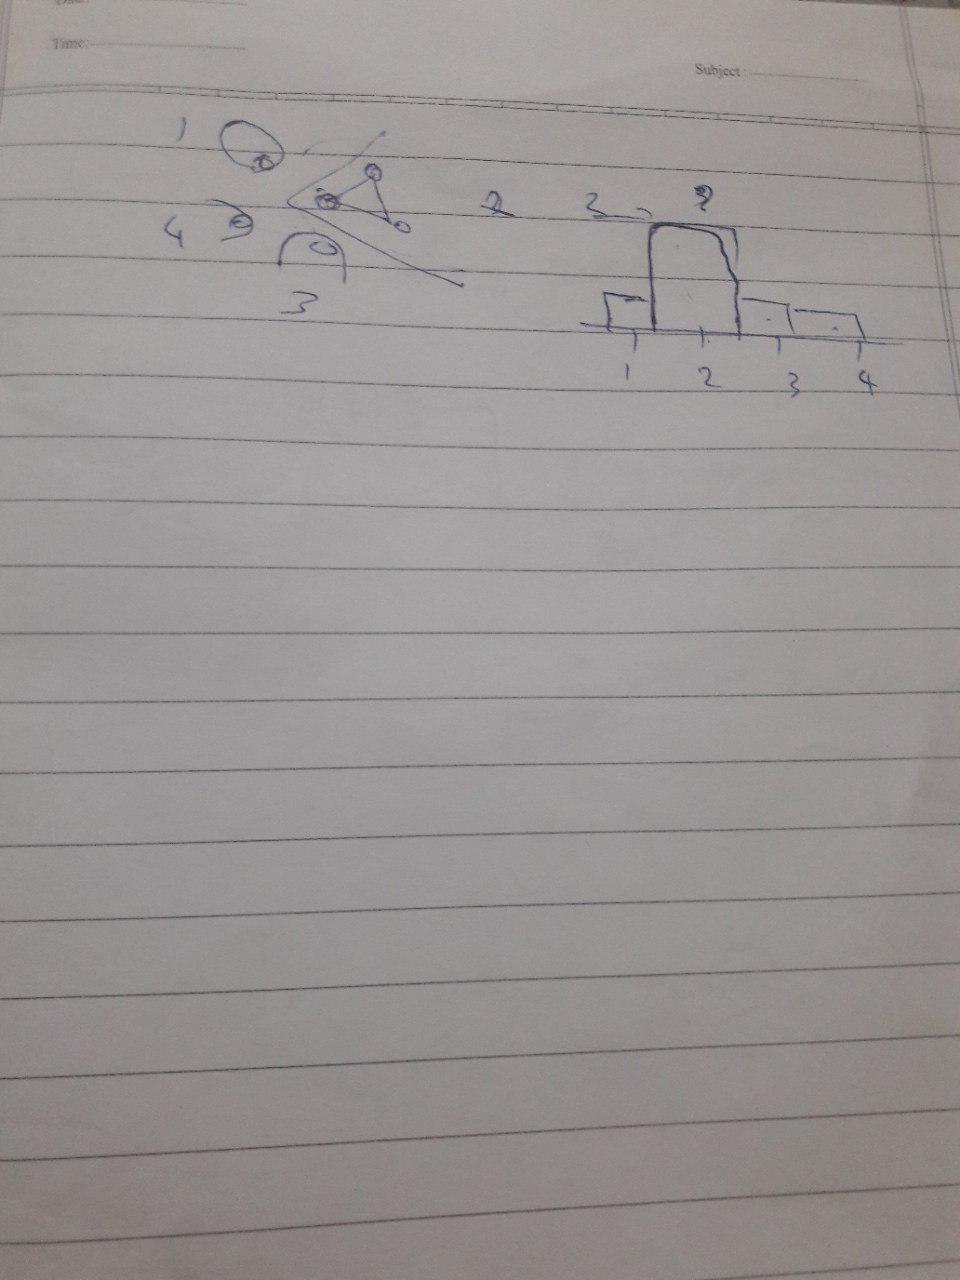 Time:
Subject
1
4
3
2 3 2
1 2 3 4